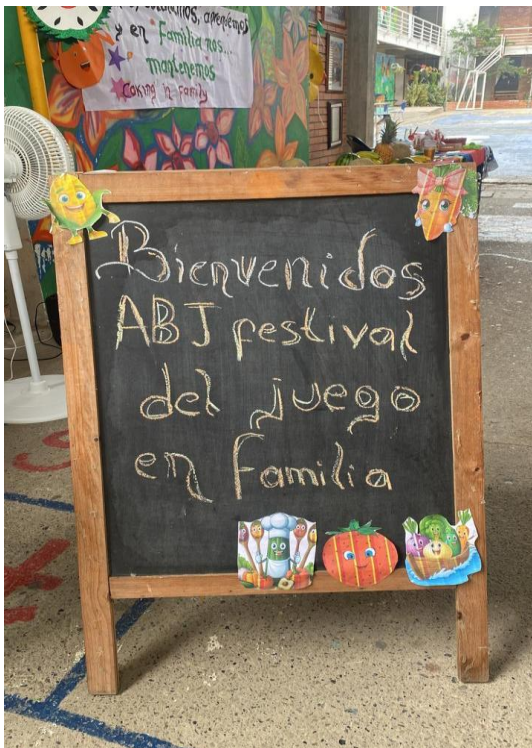 aprendemos
y en Familia nos...
mantenemos
Coking in Family
Bienvenidos
ABJ festival
del juego
en familia